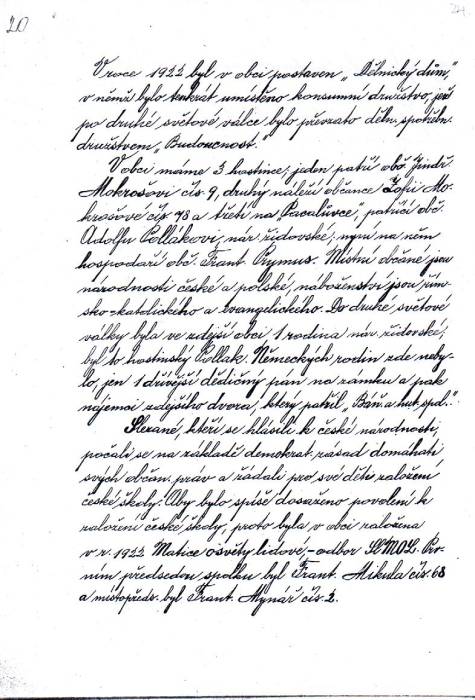 20
24.
V roce 1922 byl v obci postaven „Dělnický dům",
v němž bylo tenkrát umístěno konsumní družstvo, jež
po druhé světové válce bylo převzato děln. spotřebn.
družstvem „Budoucnost."
V obci máme 3 hostince, jeden patří obč. Jindř.
Mokrošovi čís. 9, druhý náleží občance Žofii Mo-
krošové čís. 78 a třetí na „Pacalůvce", patřící obč.
Adolfu Pollákovi, nár. židovské; nyní na něm
hospodaří obč. Frant. Prymus. Místní občané jsou
národnosti české a polské, náboženství jsou řím-
sko-katolického a evangelického. Do druhé světové
války byla ve zdejší obci 1 rodina nár. židovské,
byl to hostinský Pollak. Německých rodin zde neby-
lo, jen 1 dřívější dědičný pán na zámku a pak
nájemci zdejšího dvora, který patřil „Báň. a hut. spol."
Slezané, kteří se hlásili k české národnosti,
počali se na základě demokrat. zásad domáhati
svých občan. práv a žádali pro své děti založení
české školy. Aby bylo spíše dosaženo povolení k
založení české školy, proto byla v obci založena
v r. 1922 Matice osvěty lidové, - odbor SLMOL. Pr-
ním předsedou spolku byl Frant. Mikula čís. 68
a místopředs. byl Frant. Mynář čís. 2.